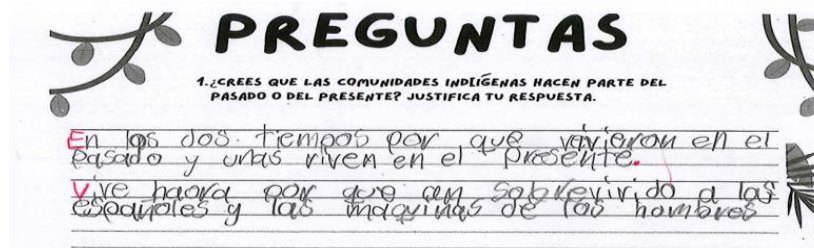 PREGUNTAS
1.¿CREES QUE LAS COMUNIDADES INDÍGENAS HACEN PARTE DEL
PASADO O DEL PRESENTE? JUSTIFICA TU RESPUESTA.
En los dos tiempos por que vivieron en el
pasado y unas viven en el presente.
Vive haora por que an sobrevivido a los
españoles y las maquinas de los hombres